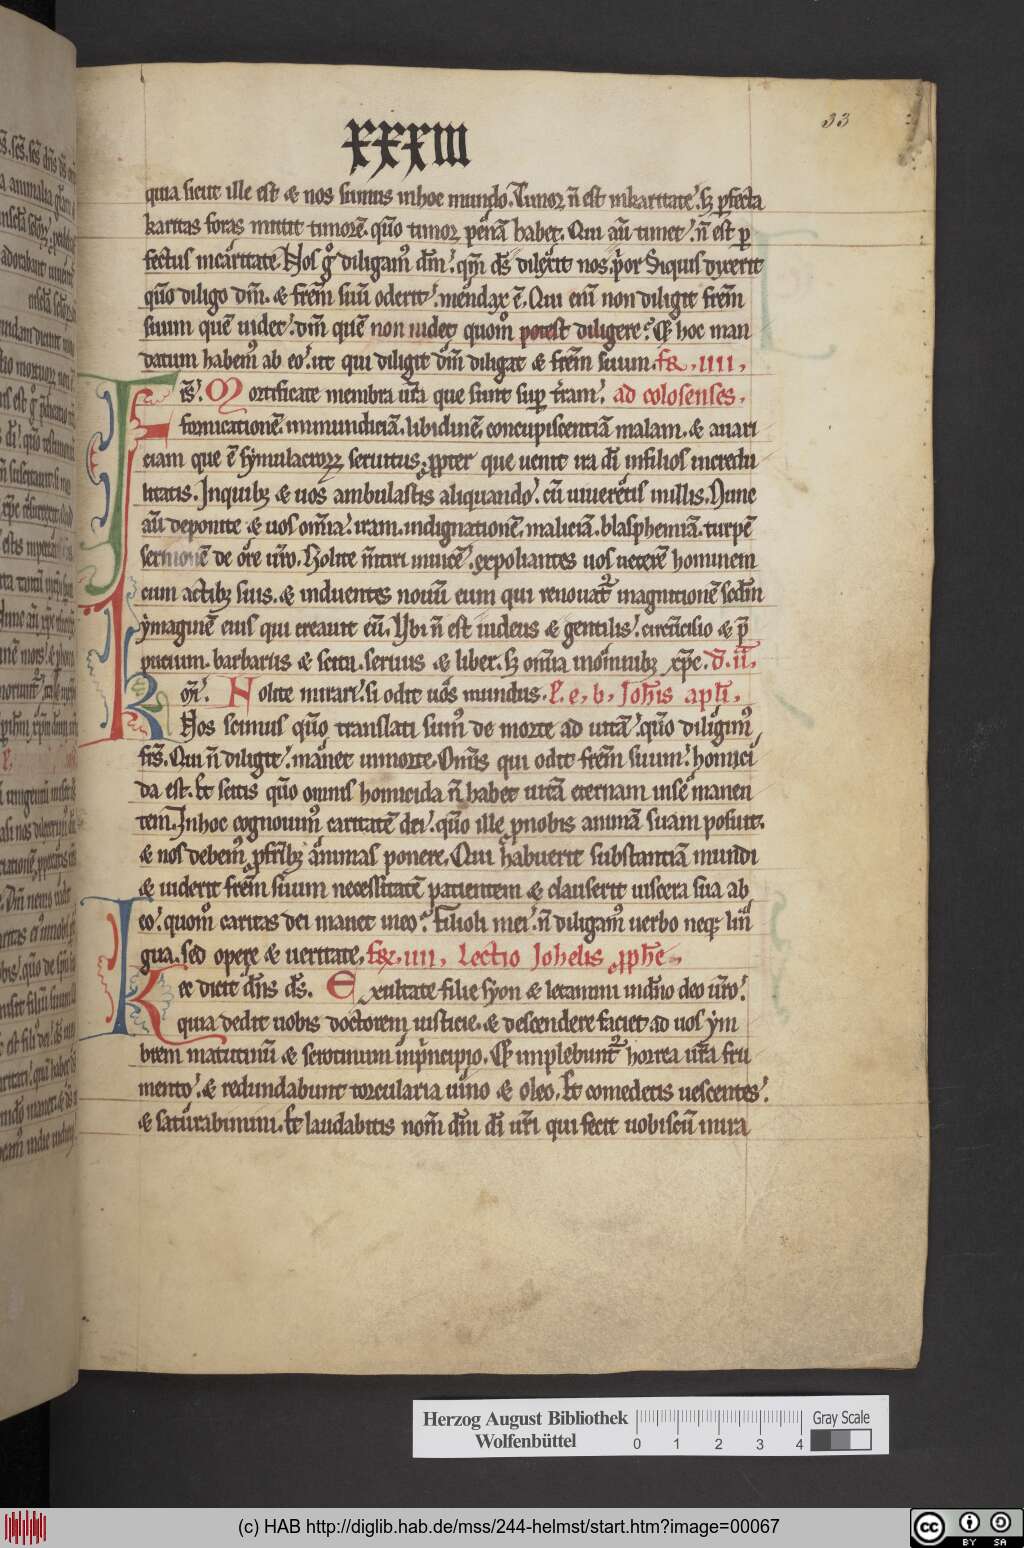 33
xxxiii
quia sicut ille est & nos sumus inhoc mundo. Timor n̄ est inkaritate. sꝫ ꝑfecta
karitas foras mittit timorē. qm̄o timor penā habet. Qui aū timet. n̄ est ꝑ
fectus incaritate. Nos gͦ diligamꝰ dm̄. qm̄ ds̄ dilexit nos prior Siquis dixerit
qm̄o diligo dm̄. & frēm suū oderit. mendax ē. Qui eni non diligit frēm
suum quē uidet. dm̄ quē non uidet quomͦ potest diligere? Et hoc man
datum habemꝰ ab eo. ut qui diligit dm̄ diligat & frēm suum. fr̄. iiii.
FRs̄. Mortificate membra ur̄a que sunt suꝑ trām. ad colosenses.
fornicationē. inmundiciā. libidinē. concupiscentiā malam. & auari
ciam que ē symulacroꝝ seruitus. ꝓpter que uenit ira di infilios incredu
litatis. Inquibꝫ & uos ambulastis aliquando. cū uiueretis inillis. Nunc
aū deponite & uos omīa. iram. indignationē. maliciā. blasphemiā. turpē
sermonē de ore uro. Nolite mētiri inuicē. expoliantes uos ueterē hominem
cum actibꝫ suis. & induentes nouū eum qui renouatᷣ inagnitionē scdm̄
ymaginē eius qui creauit eū. Ubi n̄ est iudeus & gentilis. circūcisio & p̄
putium. barbarus & scita. seruus & liber. sꝫ omīa inomnibꝫ xp̄c. d. ii.
KR m̄i. Nolite mirari. si odit uos mundus. l. e. b. Johis apli.
Nos scimus qm̄o translati sumꝰ de morte ad uitā. qm̄o diligimꝰ
frs̄. Qui n̄ diligit. manet inmorte. Omīs qui odit frēm suum. homici
da est. Et scitis qm̄o omnis homicida n̄ habet uitā eternam inse manen
tem. Inhoc cognouimꝰ caritatē dei. qm̄o ille ꝓnobis animā suam posuit.
& nos debemꝰ ꝓfrībꝫ animas ponere. Qui habuerit substantiā mundi
& uiderit frēm suum necessitatē patientem & clauserit uiscera sua ab
eo. quomͦ caritas dei manet ineo? Filioli mei. n̄ diligamꝰ uerbo neqꝫ lin
gua. sed opere & ueritate. fr̄. iiii. Lectio Johelis ꝓphe.
hec dicit dn̄s ds̄. Exultate filie syon & letamini indn̄o deo uro.
quia dedit uobis doctorem iusticie. & descendere faciet ad uos ym
brem matutinū & serotinum inprīncipio. Et implebuntᷣ horrea ur̄a fru
mento. & redundabunt torcularia uino & oleo. Et comedetis uescentes.
& saturabimini. Et laudabitis nom̄ dn̄i di ur̄i qui fecit uobiscū mira
Herzog August Bibliothek
Wolfenbüttel
0 1 2 3 4
Gray Scale
(c) HAB http://diglib.hab.de/mss/244-helmst/start.htm?image=00067
cc BY SA